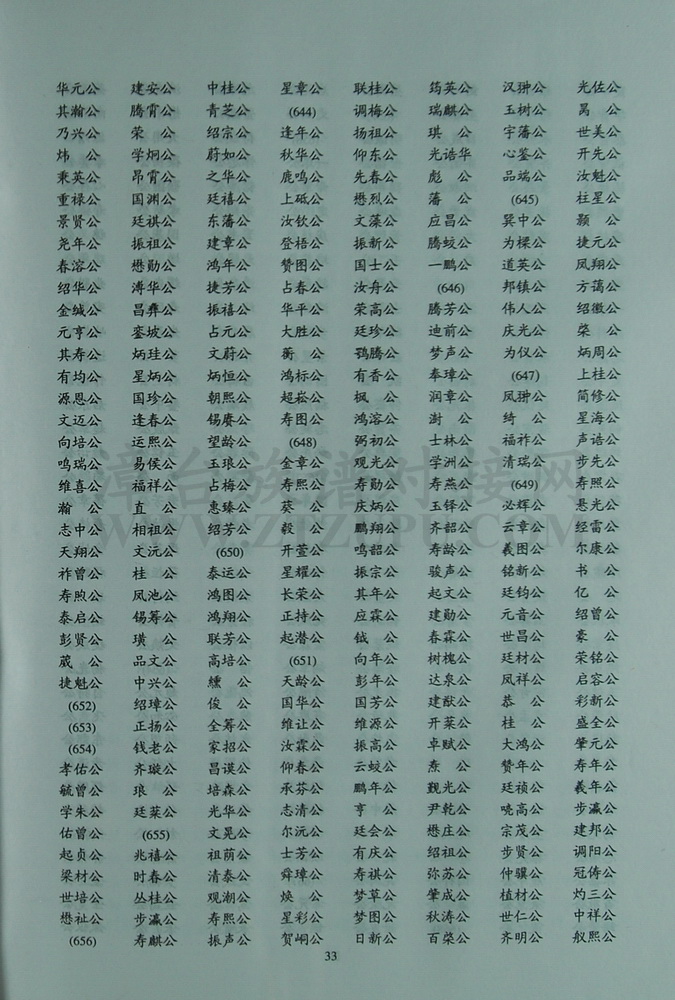 华元公 建安公 中桂公 星章公 联桂公 筠英公 汉翀公 光佐公
其瀚公 腾霄公 青芝公 (644) 调梅公 瑞麒公 玉树公 昺公
乃兴公 荣公 绍宗公 逢年公 扬祖公 琪公 宇藩公 世美公
炜公 学炯公 蔚如公 秋华公 仰东公 光诰华 心鉴公 开先公
秉英公 昂霄公 之华公 鹿鸣公 先春公 彪公 品端公 汝魁公
重禄公 国渊公 廷禧公 上砥公 懋烈公 藩公 (645) 柱星公
景贤公 廷祺公 东藩公 汝钦公 文藻公 应昌公 巽中公 颢公
尧年公 振祖公 建章公 登梧公 振新公 腾蛟公 为樑公 捷元公
春溶公 懋勋公 鸿年公 赞图公 国士公 一鹏公 道英公 凤翔公
绍华公 溥华公 捷芳公 占春公 汝舟公 (646) 邦镇公 方蔼公
金缄公 昌彝公 振禧公 华平公 荣高公 腾芳公 伟人公 绍徽公
元亨公 銮坡公 占元公 大胜公 廷珍公 迪前公 庆光公 棨公
其寿公 炳珪公 文蔚公 蘅公 鹗腾公 梦声公 为仪公 炳周公
有均公 星炳公 炳恒公 鸿标公 有香公 奉璋公 (647) 上桂公
源恩公 国珍公 朝熙公 超崧公 枫公 润章公 凤翀公 简修公
文迈公 逢春公 锡赓公 寿图公 鸿溶公 澍公 绮公 星海公
向培公 运熙公 望龄公 (648) 弼初公 士林公 福祚公 声诰公
鸣瑞公 易侯公 玉琅公 金章公 观光公 学洲公 清瑞公 步先公
维喜公 福祥公 占梅公 寿熙公 寿勋公 寿燕公 (649) 寿照公
瀚公 直公 惠臻公 葵公 庆炳公 玉铎公 必辉公 悬光公
志中公 相祖公 绍芳公 毅公 鹏翔公 齐韶公 云章公 经雷公
天翔公 文沅公 (650) 开萱公 鸣韶公 寿龄公 羲图公 尔康公
祚曾公 桂公 泰运公 星耀公 振宗公 骏声公 铭新公 书公
寿煦公 凤池公 鸿图公 长荣公 其年公 起文公 廷钧公 亿公
泰启公 锡筹公 鸿翔公 正持公 应霖公 建勋公 元音公 绍曾公
彭贤公 璜公 联芳公 起潜公 钺公 春霖公 世昌公 豪公
葳公 品文公 高培公 (651) 向年公 树槐公 廷材公 荣铭公
捷魁公 中兴公 纁公 天龄公 彭年公 达泉公 凤祥公 启容公
(652) 绍璋公 俊公 国华公 国芳公 建猷公 恭公 彩新公
(653) 正扬公 全筹公 维让公 维源公 开莱公 桂公 盛全公
(654) 钱老公 家招公 汝霖公 振高公 卓赋公 大鸿公 肇元公
孝佑公 齐璇公 昌谟公 仰春公 云蛟公 焘公 赞年公 寿年公
毓曾公 琅公 培森公 承芬公 鹏年公 觐光公 廷祯公 羲年公
学朱公 廷莱公 光华公 志清公 亨公 尹乾公 哓高公 步瀛公
佑曾公 (655) 文晃公 尔沅公 廷会公 懋庄公 宗茂公 建邦公
起贞公 兆禧公 祖荫公 士芳公 有庆公 绍祖公 步贤公 调阳公
梁材公 时春公 清泰公 舜璋公 寿祺公 弥苏公 仲骥公 冠俦公
世培公 丛桂公 观潮公 焕公 梦草公 肇成公 植材公 灼三公
懋祉公 步瀛公 寿熙公 星彩公 梦图公 秋涛公 世仁公 中祥公
(656) 寿麒公 振声公 贺峒公 日新公 百棨公 齐明公 舣熙公
33